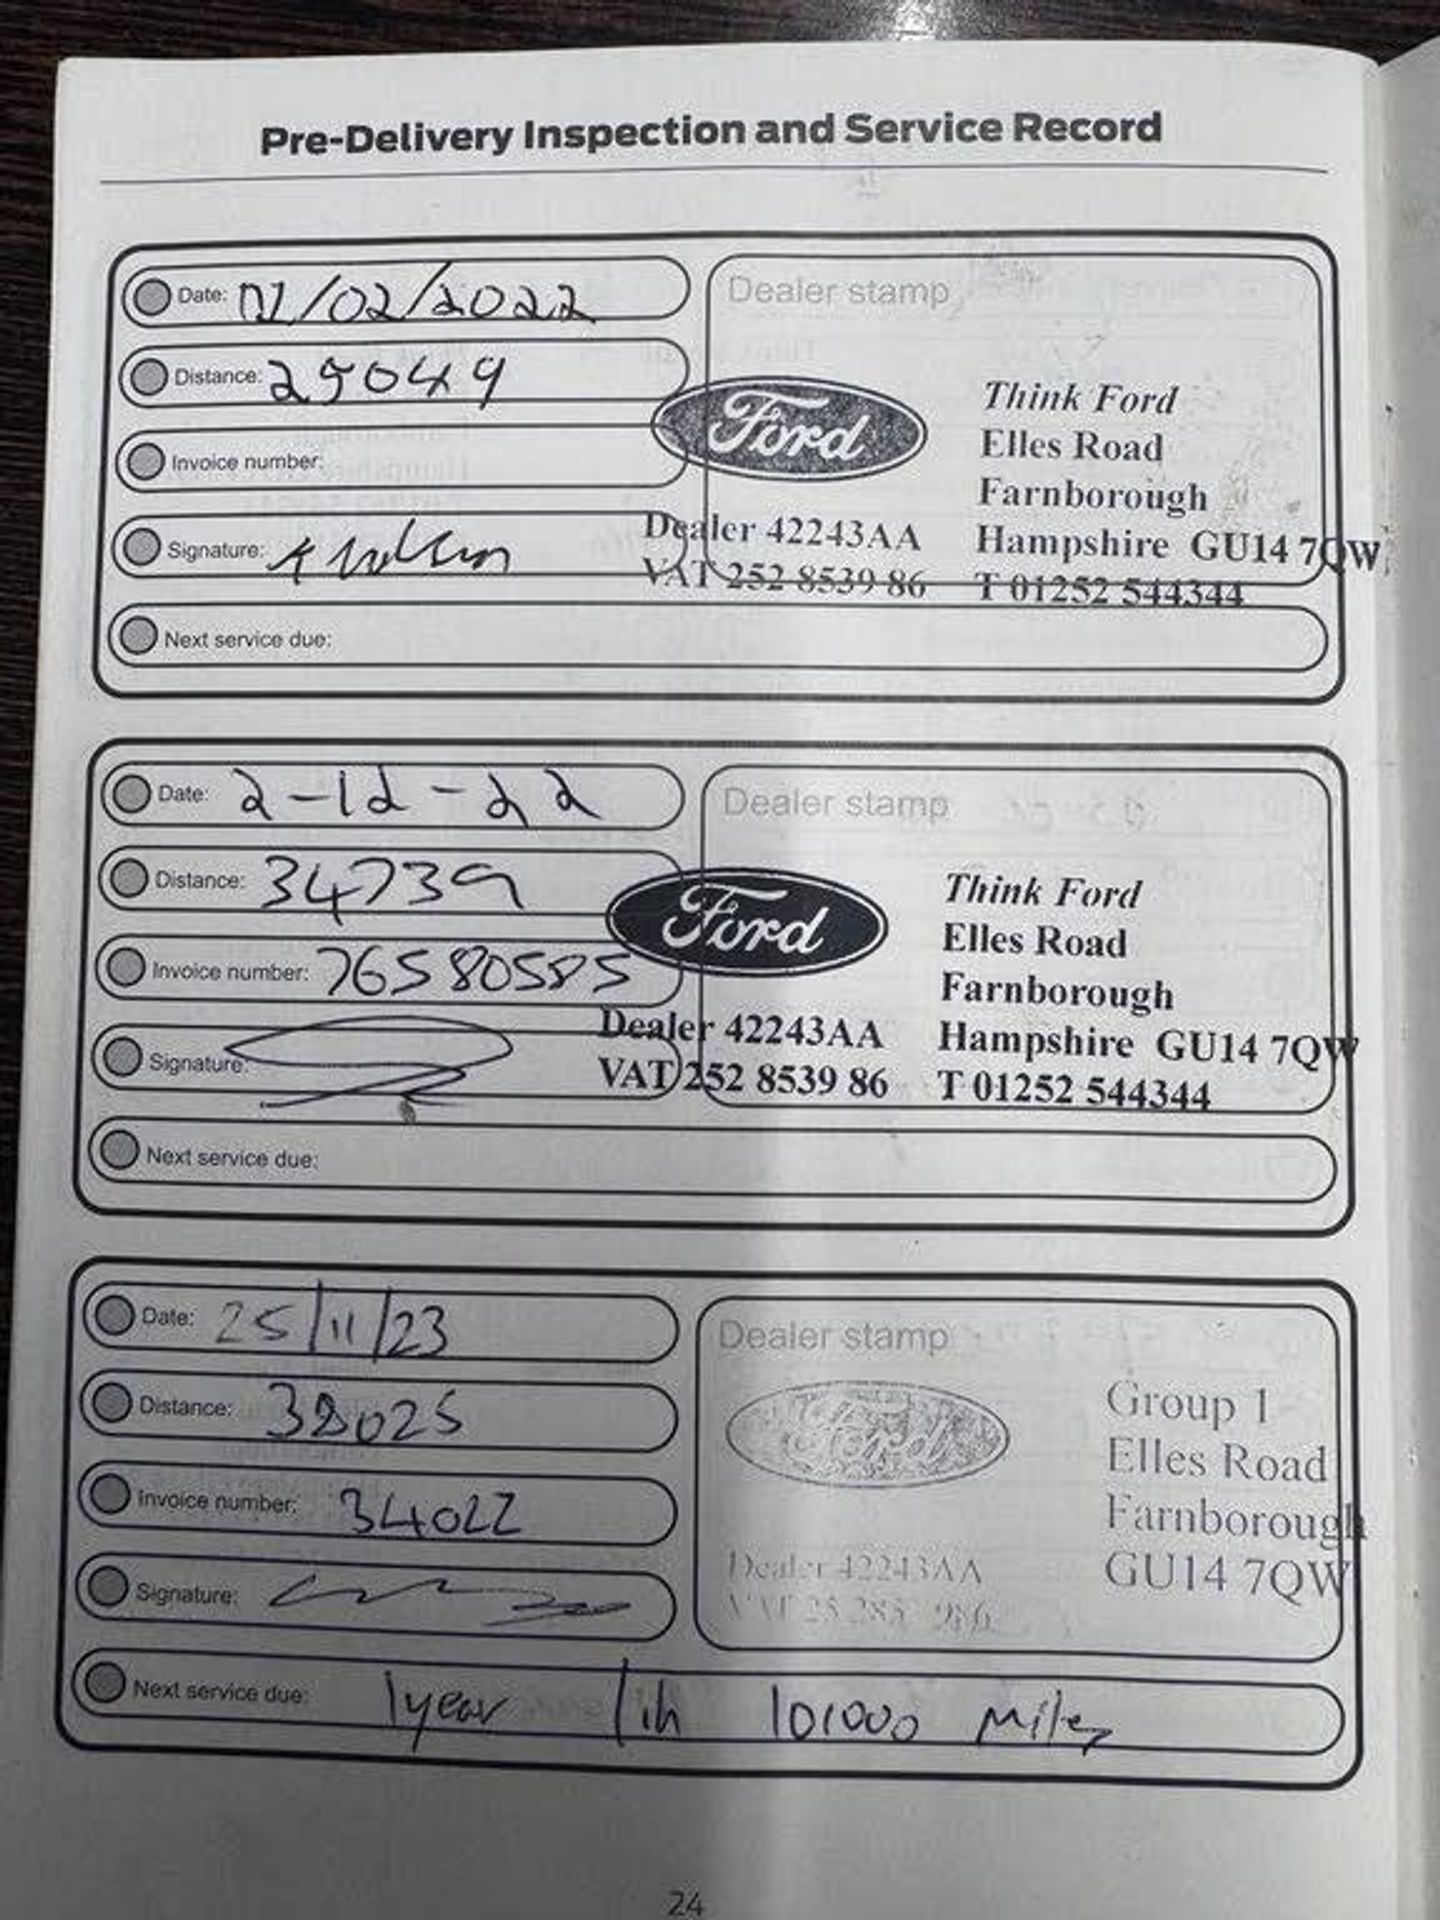 Pre-Delivery Inspection and Service Record
Date: 01/02/2022
Distance: 29049
Invoice number:
Signature:
Next service due:
Dealer stamp
Ford
Think Ford
Elles Road
Farnborough
Dealer 42243AA Hampshire GU14 7QW
VAT 252 8539 86 T 01252 544344
Date: 2-12-22
Distance: 34739
Invoice number: 76580585
Signature:
Next service due:
Dealer stamp
Ford
Think Ford
Elles Road
Farnborough
Dealer 42243AA Hampshire GU14 7QW
VAT 252 8539 86 T 01252 544344
Date: 25/11/23
Distance: 38025
Invoice number: 34022
Signature:
Next service due: 1 year / 10,000 miles
Dealer stamp
Ford
Group 1
Elles Road
Farnborough
GU14 7QW
Dealer 42243AA
24